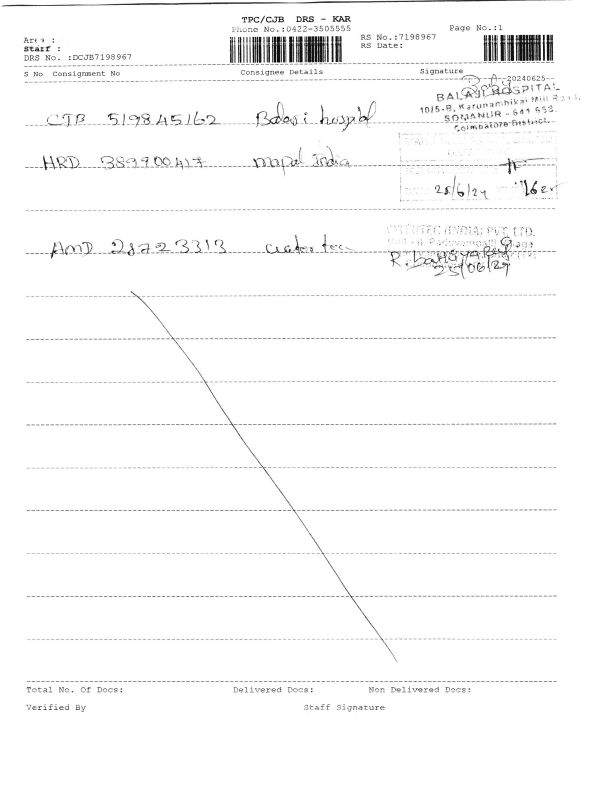 TPC/CJB DRS - KAR
Phone No.:0422-3505555
Page No.:1
Area :
RS No.:7198967
Staff :
RS Date:
DRS No. :DCJB7198967
S No Consignment No Consignee Details Signature
20240625
BALAJI HOSPITAL
10/5-B, Karunambikai Mill Road,
SOMANUR - 641 668.
Coimbatore District.
CJB 519845162 Balaji hospital
HRD 389900417 mapal India
25/6/24
AMD 28723313
(INDIA) PVT. LTD.
25/06/24
Total No. Of Docs: Delivered Docs: Non Delivered Docs:
Verified By Staff Signature